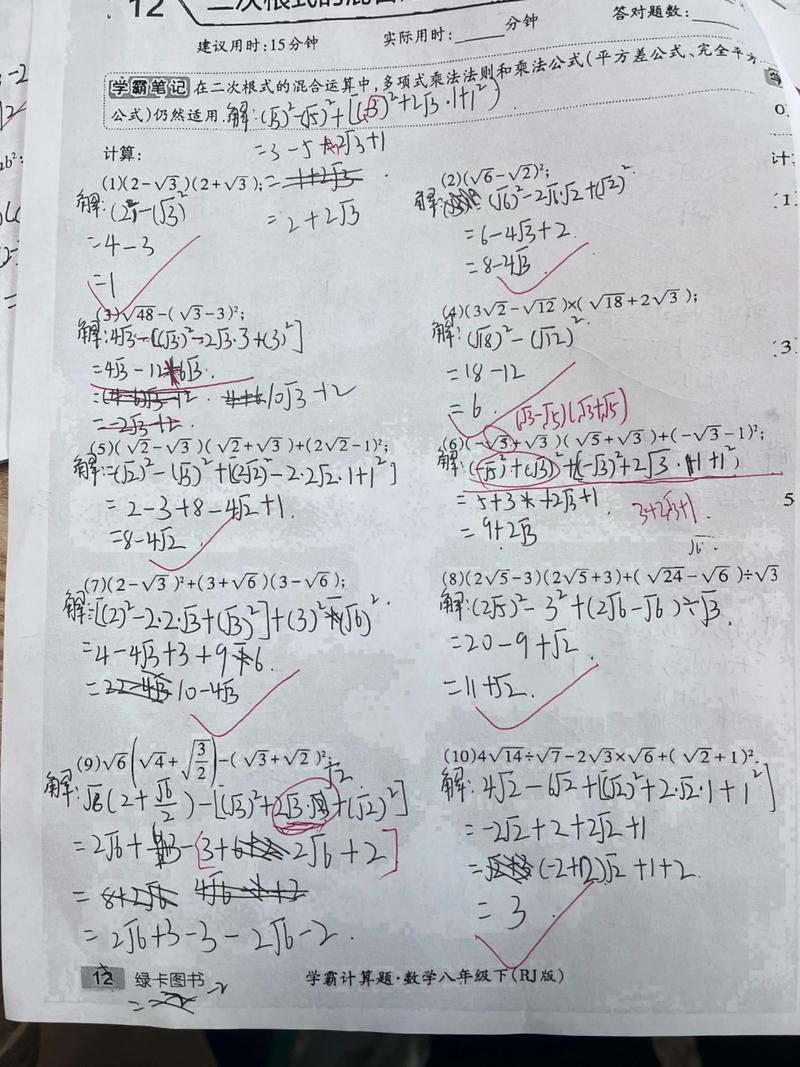 12 二次根式的混合
建议用时:15分钟 实际用时:____分钟 答对题数:____
学霸笔记 在二次根式的混合运算中,多项式乘法法则和乘法公式(平方差公式、完全平方
公式)仍然适用.
解:(√3)²-(√5)²+[(√3)²+2√3·1+1²)
=3-5+2√3+1
=2+2√3
计算:
(1)(2-√3)(2+√3);
解:(2)²-(√3)²
=4-3
=1
(2)(√6-√2)²;
解: (√6)²-2√6·√2+(√2)²
=6-4√3+2
=8-4√3
(3)√48-(√3-3)²;
解:4√3-[(√3)²-2√3·3+(3)²]
=4√3-12+6√3.
10√3+12
(4)(3√2-√12)×(√18+2√3);
解:(√18)²-(√12)²
=18-12
=6.
(√3-√5)(√3+√5)
(5)(√2-√3)(√2+√3)+(2√2-1)²;
解:=(√2)²-(√3)²+[(2√2)²-2·2√2·1+1²]
=2-3+8-4√2+1.
=8-4√2.
(6)(-√5+√3)(√5+√3)+(-√3-1)²;
解:(-√5)²+(√3)²+(-√3)²+2√3·1+1²)
=5+3+2√3+1.
=9+2√3
3+2√3+1.
√6
(7)(2-√3)²+(3+√6)(3-√6);
解:=[(2)²-2·2·√3+(√3)²]+(3)²-(√6)²
=4-4√3+3+9-6.
=10-4√3
(8)(2√5-3)(2√5+3)+(√24-√6)÷√3
解:(2√5)²-3²+(2√6-√6)÷√3.
=20-9+√2
=11+√2.
(9)√6(√4+√(3/2))-(√3+√2)²;
√2
解:√6(2+√6/2)-[(√3)²+2√3·√3+(√2)²]
=2√6+3-[3+2√6+2]
=2√6+3-3-2√6-2.
=-2
(10)4√14÷√7-2√3×√6+(√2+1)².
解:4√2-6√2+[(√2)²+2·√2·1+1²]
=-2√2+2+2√2+1
=(-2+2)√2+1+2.
=3
12 绿卡图书 学霸计算题·数学八年级下(RJ版)